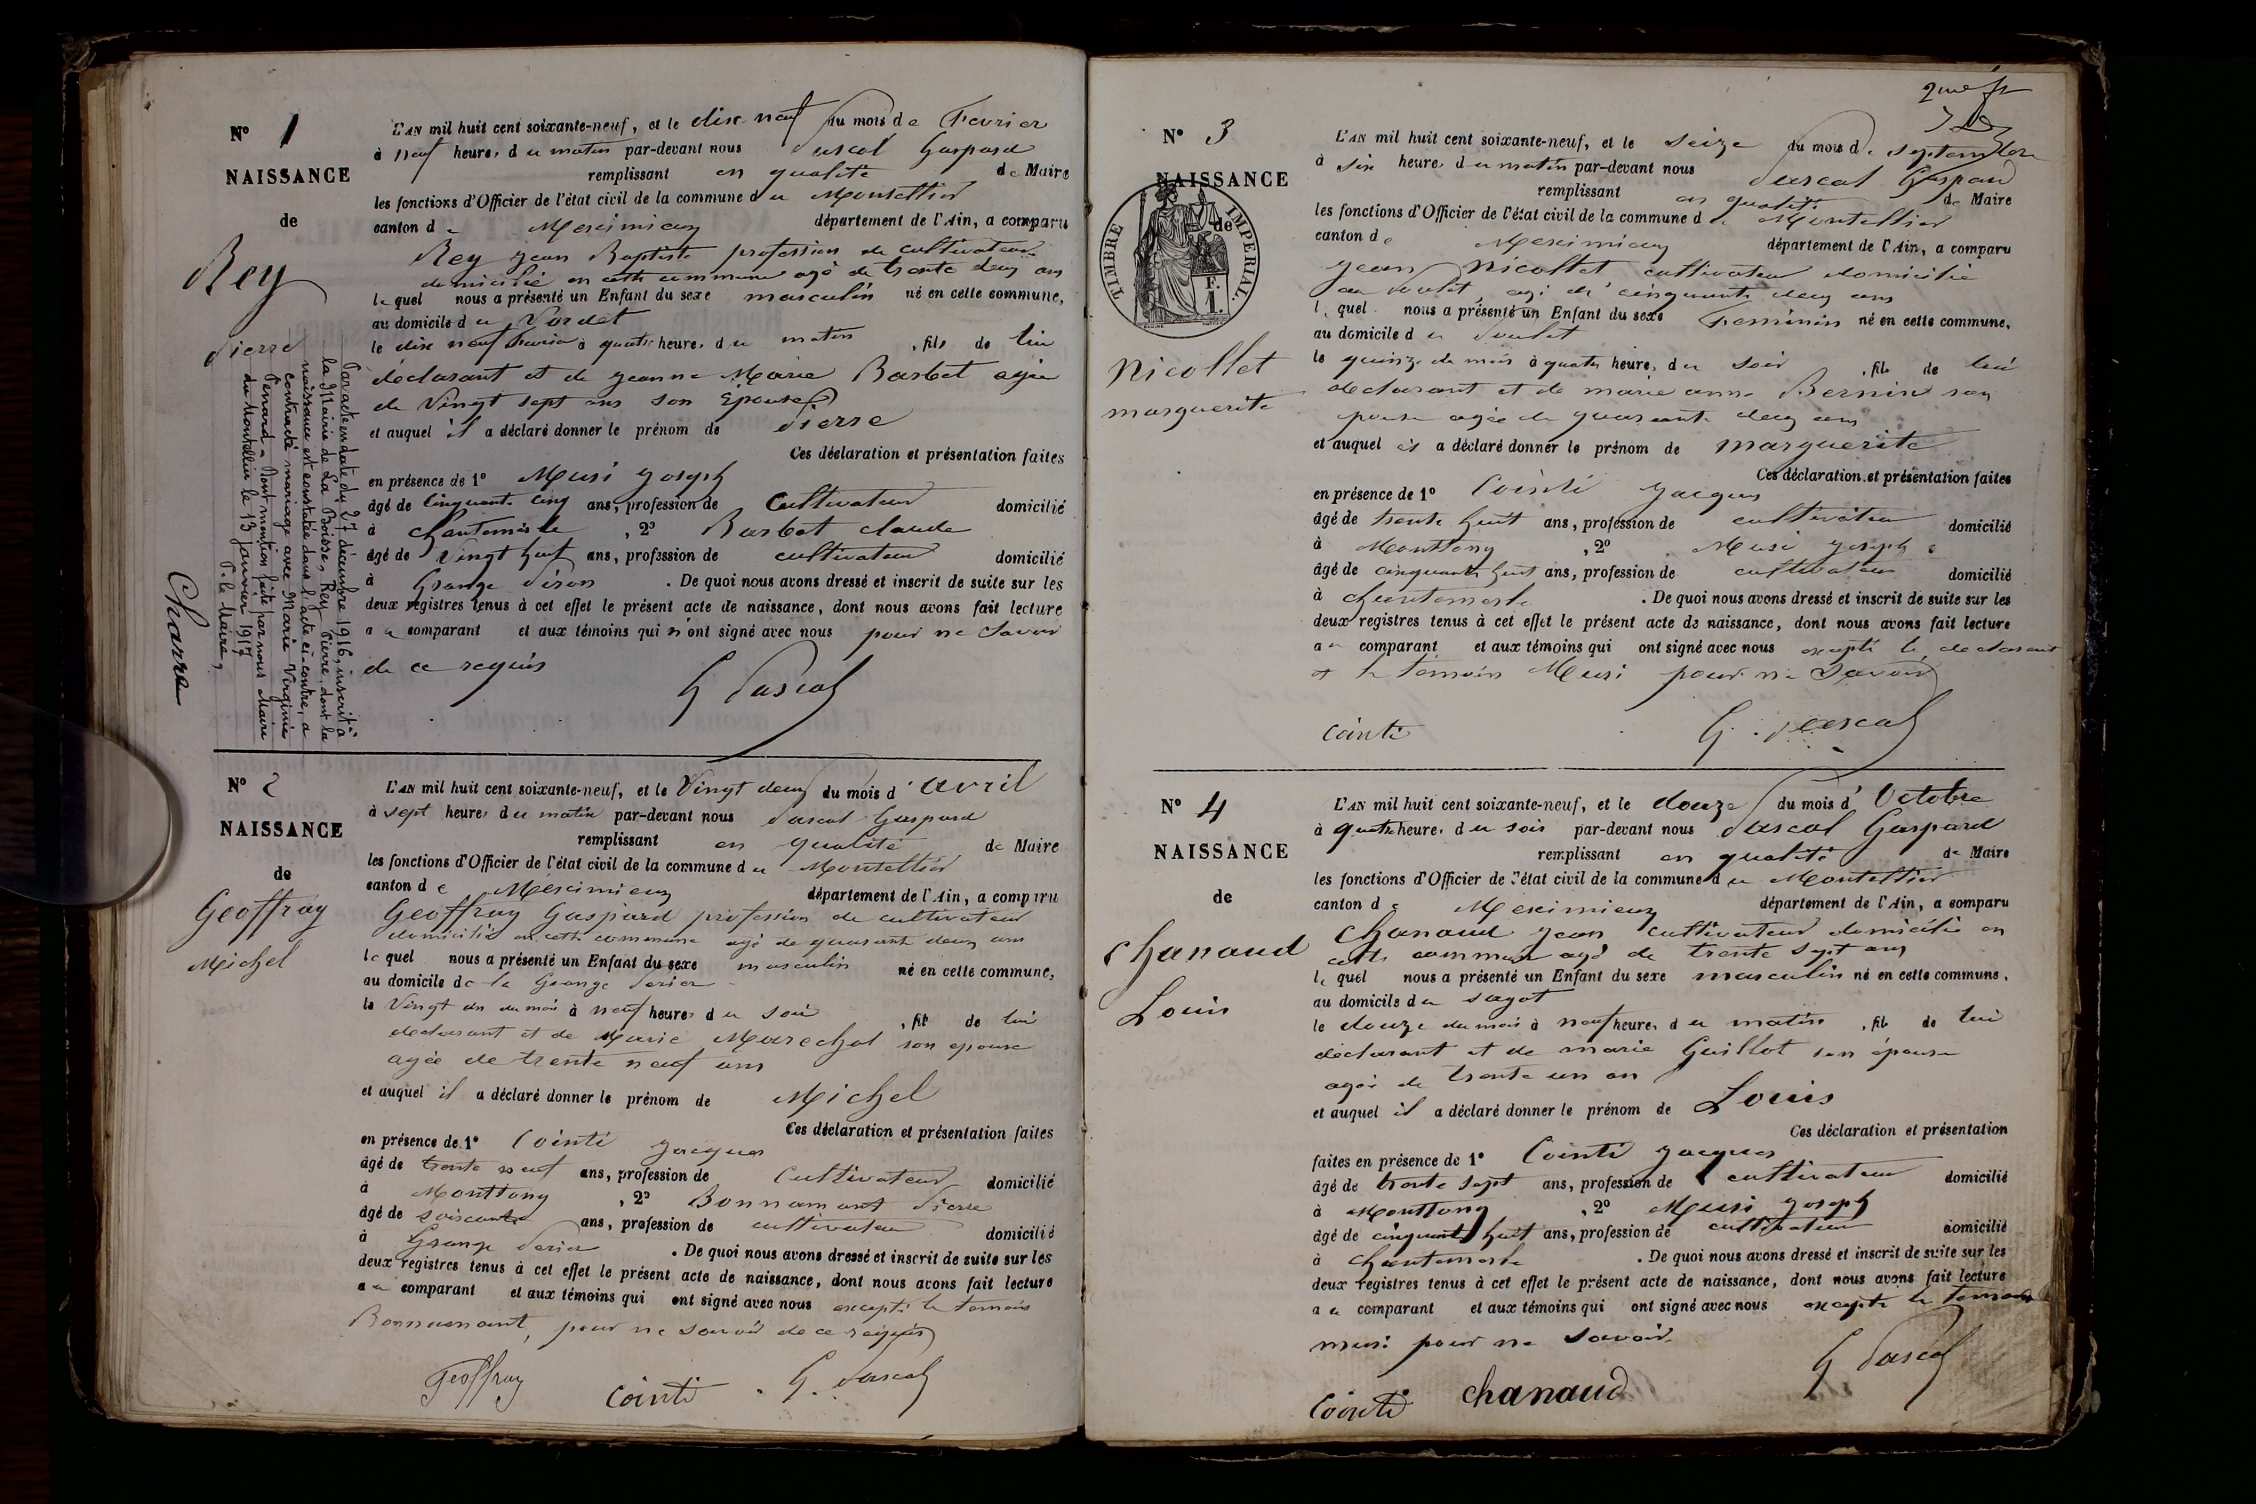 N° 1
NAISSANCE
de
Rey
Pierre
Par acte en date du 27 décembre 1916, inscrit à
la Mairie de La Boisse, Rey Pierre, dont la
naissance est constatée dans l'acte ci-contre, a
contracté mariage avec Marie Virginie
Penard. Dont mention faite par nous Maire
du Montellier le 13 janvier 1917
P. le Maire,
Charre
L'AN mil huit cent soixante-neuf, et le dix neuf du mois de Fevrier
à neuf heures du matin par-devant nous Pascal Gaspard
remplissant en qualité de Maire
les fonctions d'Officier de l'état civil de la commune du Montellier
canton de Meximieux département de l'Ain, a comparu
Rey jean Baptiste profession de cultivateur
domicilié en cette commune agé de trente deux ans
lequel nous a présenté un Enfant du sexe masculin né en cette commune,
au domicile du Verdet
le dix neuf fevrier à quatre heures du matin, fils de lui
déclarant et de jeanne Marie Barbet agée
de Vingt sept ans son Epouse
et auquel il a déclaré donner le prénom de Pierre
Ces déclaration et présentation faites
en présence de 1° Musi joseph
âgé de cinquante cinq ans, profession de Cultivateur domicilié
à Chantemerle, 2° Barbet claude
âgé de Vingt huit ans, profession de cultivateur domicilié
à Grange . De quoi nous avons dressé et inscrit de suite sur les
deux registres tenus à cet effet le présent acte de naissance, dont nous avons fait lecture
au comparant et aux témoins qui n'ont signé avec nous pour ne Savoir
de ce requis
G Pascal
N° 2
NAISSANCE
de
Geoffray
Michel
L'AN mil huit cent soixante-neuf, et le Vingt deux du mois d'avril
à sept heures du matin par-devant nous Pascal Gaspard
remplissant en qualité de Maire
les fonctions d'Officier de l'état civil de la commune du Montellier
canton de Meximieux département de l'Ain, a comparu
Geoffray Gaspard profession de cultivateur
domicilié en cette commune agé de quarante deux ans
lequel nous a présenté un Enfant du sexe masculin né en cette commune,
au domicile de la Grange
le Vingt un du mois à neuf heures du soir, fils de lui
declarant et de Marie Marechal son epouse
agée de trente neuf ans
et auquel il a déclaré donner le prénom de Michel
Ces déclaration et présentation faites
en présence de 1° Cointi jacques
âgé de trente neuf ans, profession de Cultivateur domicilié
à Montlong, 2° Bonnamant Pierre
âgé de soixante ans, profession de cultivateur domicilié
à Grange . De quoi nous avons dressé et inscrit de suite sur les
deux registres tenus à cet effet le présent acte de naissance, dont nous avons fait lecture
au comparant et aux témoins qui ont signé avec nous excepté le temoin
Bonnamant, pour ne savoir de ce requis
Geoffray Cointi G. Pascal
2me fr
N° 3
NAISSANCE
de
TIMBRE IMPERIAL.
1 F.
Nicollet
marguerite
L'AN mil huit cent soixante-neuf, et le seize du mois de septembre
à six heures du matin par-devant nous Pascal Gaspard
remplissant en qualité de Maire
les fonctions d'Officier de l'état civil de la commune du Montellier
canton de Meximieux département de l'Ain, a comparu
jean Nicollet cultivateur domicilié
au agé de cinquante deux ans
lequel nous a présenté un Enfant du sexe Feminin né en cette commune,
au domicile du
le quinze du mois à quatre heures du soir, fils de lui
declarant et de marie anne Bernin son
epouse agée de quarante deux ans
et auquel il a déclaré donner le prénom de marguerite
Ces déclaration et présentation faites
en présence de 1° Cointi jacques
âgé de trente huit ans, profession de cultivateur domicilié
à Montlong, 2° Musi joseph
âgé de cinquante huit ans, profession de cultivateur domicilié
à chantemerle . De quoi nous avons dressé et inscrit de suite sur les
deux registres tenus à cet effet le présent acte de naissance, dont nous avons fait lecture
au comparant et aux témoins qui ont signé avec nous excepté le declarant
et le temoin Musi pour ne Savoir
Cointi G. Pascal
N° 4
NAISSANCE
de
Chanaud
Louis
L'AN mil huit cent soixante-neuf, et le douze du mois d'Octobre
à quatre heures du soir par-devant nous Pascal Gaspard
remplissant en qualité de Maire
les fonctions d'Officier de l'état civil de la commune du Montellier
canton de Meximieux département de l'Ain, a comparu
Chanaud jean Cultivateur domicilié en
cette commune agé de trente sept ans
lequel nous a présenté un Enfant du sexe masculin né en cette commune,
au domicile du sagot
le douze du mois à neuf heures du matin, fils de lui
déclarant et de marie Guillot son épouse
agée de trente un an
et auquel il a déclaré donner le prénom de Louis
Ces déclaration et présentation
faites en présence de 1° Cointi jacques
âgé de trente sept ans, profession de cultivateur domicilié
à Montlong, 2° Musi joseph
âgé de cinquante huit ans, profession de cultivateur domicilié
à chantemerle . De quoi nous avons dressé et inscrit de suite sur les
deux registres tenus à cet effet le présent acte de naissance, dont nous avons fait lecture
au comparant et aux témoins qui ont signé avec nous excepte le temoin
musi pour ne Savoir
G Pascal
Cointi Chanaud